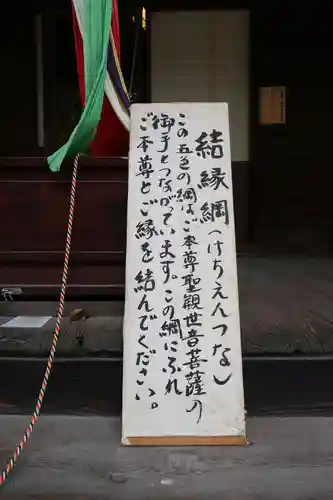 結縁綱(けちえんつな)
この五色の綱はご本尊聖観世音菩薩の
御手とつながっています、この綱にふれ
ご本尊とご縁を結んでください。